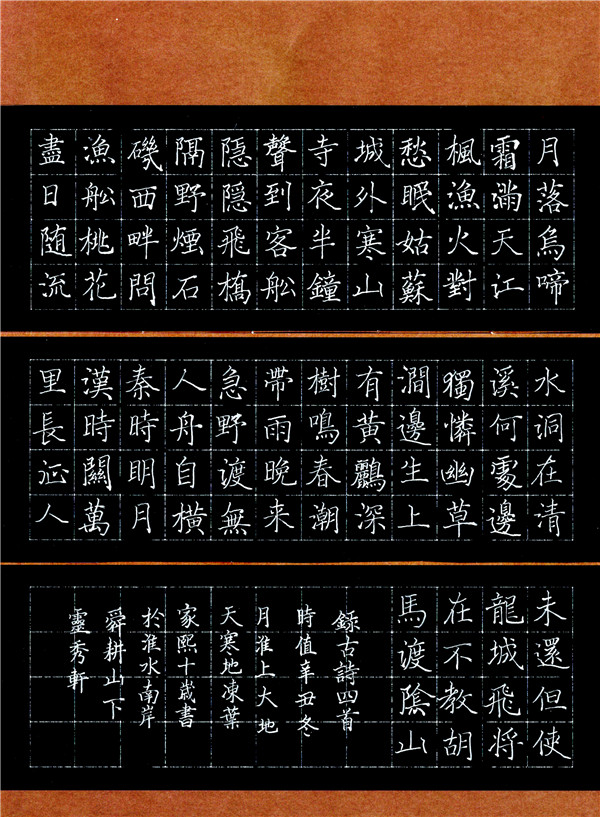 月落烏啼
霜滿天江
楓漁火對
愁眠姑蘇
城外寒山
寺夜半鐘
聲到客船
隱隱飛橋
隔野煙石
磯西畔問
漁船桃花
盡日随流
水洞在清
溪何處邊
獨憐幽草
澗邊生上
有黃鸝深
樹鳴春潮
帶雨晚来
急野渡無
人舟自橫
秦時明月
漢時關萬
里長征人
未還但使
龍城飛将
在不教胡
馬渡陰山
錄古詩四首
時值辛丑冬
月淮上大地
天寒地凍葉
家熙十歲書
於淮水南岸
舜耕山下
靈秀軒